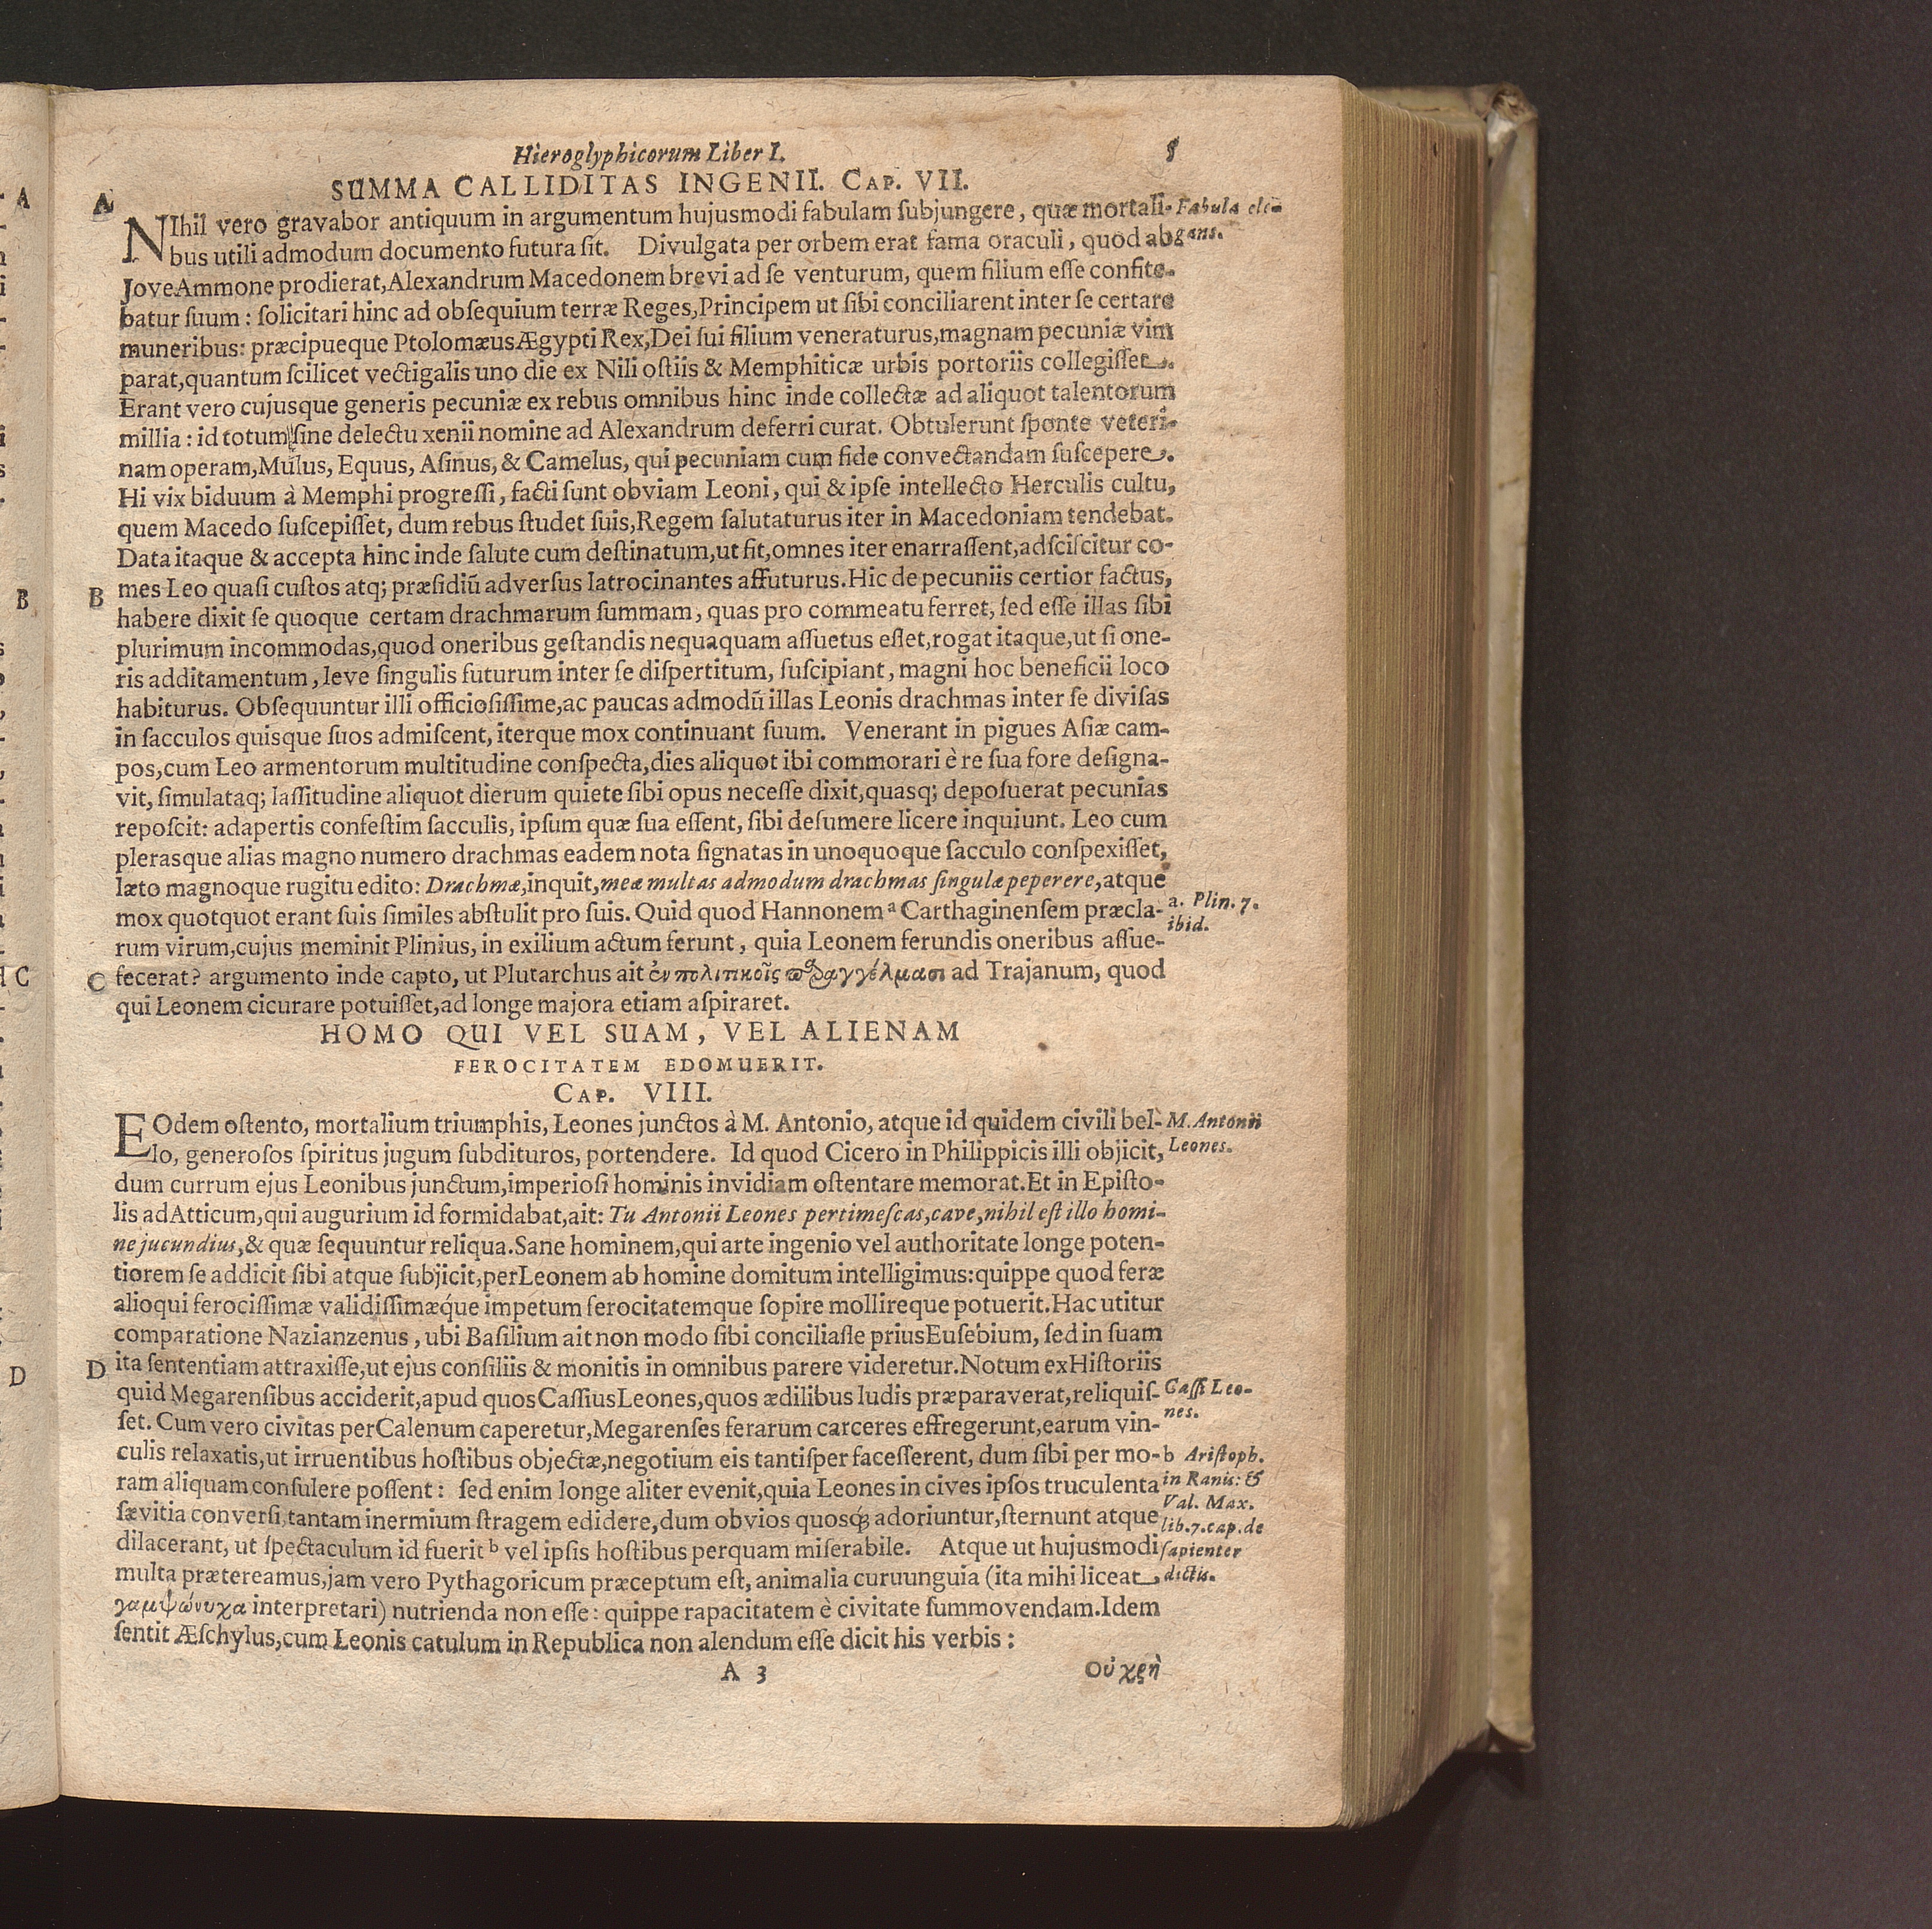 Hieroglyphicorum Liber I. 5
SUMMA CALLIDITAS INGENII. CAP. VII.
A NIhil vero gravabor antiquum in argumentum hujusmodi fabulam ſubjungere, quæ mortali- Fabula ele-
bus utili admodum documento futura ſit. Divulgata per orbem erat fama oraculi, quod ab gans.
Jove Ammone prodierat, Alexandrum Macedonem brevi ad ſe venturum, quem filium eſſe confite-
batur ſuum: ſolicitari hinc ad obſequium terræ Reges, Principem ut ſibi conciliarent inter ſe certare
muneribus: præcipueque Ptolomæus Ægypti Rex, Dei ſui filium veneraturus, magnam pecuniæ vim
parat, quantum ſcilicet vectigalis uno die ex Nili oſtiis & Memphiticæ urbis portoriis collegiſſet.
Erant vero cujusque generis pecuniæ ex rebus omnibus hinc inde collectæ ad aliquot talentorum
millia: id totum ſine delectu xenii nomine ad Alexandrum deferri curat. Obtulerunt ſponte veteri-
nam operam, Mulus, Equus, Aſinus, & Camelus, qui pecuniam cum fide convectandam ſuſcepere.
Hi vix biduum à Memphi progreſſi, facti ſunt obviam Leoni, qui & ipſe intellecto Herculis cultu,
quem Macedo ſuſcepiſſet, dum rebus ſtudet ſuis, Regem ſalutaturus iter in Macedoniam tendebat.
Data itaque & accepta hinc inde ſalute cum deſtinatum, ut fit, omnes iter enarraſſent, adſciſcitur co-
B mes Leo quaſi cuſtos atq; præſidiũ adverſus latrocinantes affuturus. Hic de pecuniis certior factus,
habere dixit ſe quoque certam drachmarum ſummam, quas pro commeatu ferret, ſed eſſe illas ſibi
plurimum incommodas, quod oneribus geſtandis nequaquam aſſuetus eſſet, rogat itaque, ut ſi one-
ris additamentum, leve ſingulis futurum inter ſe diſpertitum, ſuſcipiant, magni hoc beneficii loco
habiturus. Obſequuntur illi officioſiſſime, ac paucas admodũ illas Leonis drachmas inter ſe diviſas
in ſacculos quisque ſuos admiſcent, iterque mox continuant ſuum. Venerant in pigues Aſiæ cam-
pos, cum Leo armentorum multitudine conſpecta, dies aliquot ibi commorari è re ſua fore deſigna-
vit, ſimulataq; laſſitudine aliquot dierum quiete ſibi opus neceſſe dixit, quasq; depoſuerat pecunias
repoſcit: adapertis confeſtim ſacculis, ipſum quæ ſua eſſent, ſibi deſumere licere inquiunt. Leo cum
plerasque alias magno numero drachmas eadem nota ſignatas in unoquoque ſacculo conſpexiſſet,
læto magnoque rugitu edito: Drachmæ, inquit, meæ multas admodum drachmas ſingulæ peperere, atque
mox quotquot erant ſuis ſimiles abſtulit pro ſuis. Quid quod Hannonem a Carthaginenſem præcla- a. Plin. 7.
rum virum, cujus meminit Plinius, in exilium actum ferunt, quia Leonem ferundis oneribus aſſue- ibid.
C fecerat? argumento inde capto, ut Plutarchus ait ἐν πολιτικοῖς παραγγέλμασι ad Trajanum, quod
qui Leonem cicurare potuiſſet, ad longe majora etiam aſpiraret.
HOMO QUI VEL SUAM, VEL ALIENAM
FEROCITATEM EDOMUERIT.
CAP. VIII.
EOdem oſtento, mortalium triumphis, Leones junctos à M. Antonio, atque id quidem civili bel- M. Antonii
lo, generoſos ſpiritus jugum ſubdituros, portendere. Id quod Cicero in Philippicis illi objicit, Leones.
dum currum ejus Leonibus junctum, imperioſi hominis invidiam oſtentare memorat. Et in Epiſto-
lis ad Atticum, qui augurium id formidabat, ait: Tu Antonii Leones pertimeſcas, cave, nihil eſt illo homi-
ne jucundius, & quæ ſequuntur reliqua. Sane hominem, qui arte ingenio vel authoritate longe poten-
tiorem ſe addicit ſibi atque ſubjicit, per Leonem ab homine domitum intelligimus: quippe quod feræ
alioqui ferociſſimæ validiſſimæq́ue impetum ferocitatemque ſopire mollireque potuerit. Hac utitur
comparatione Nazianzenus, ubi Baſilium ait non modo ſibi conciliaſſe prius Euſebium, ſed in ſuam
D ita ſententiam attraxiſſe, ut ejus conſiliis & monitis in omnibus parere videretur. Notum ex Hiſtoriis
quid Megarenſibus acciderit, apud quos Caſſius Leones, quos ædilibus ludis præparaverat, reliquiſ- Caſſi Leo-
ſet. Cum vero civitas per Calenum caperetur, Megarenſes ferarum carceres effregerunt, earum vin- nes.
culis relaxatis, ut irruentibus hoſtibus objectæ, negotium eis tantiſper faceſſerent, dum ſibi per mo- b Ariſtoph.
ram aliquam conſulere poſſent: ſed enim longe aliter evenit, quia Leones in cives ipſos truculenta in Ranis: &
ſævitia converſi, tantam inermium ſtragem edidere, dum obvios quosq́; adoriuntur, ſternunt atque Val. Max. lib. 7. cap. de
dilacerant, ut ſpectaculum id fuerit b vel ipſis hoſtibus perquam miſerabile. Atque ut hujusmodi sapienter
multa prætereamus, jam vero Pythagoricum præceptum eſt, animalia curuunguia (ita mihi liceat dictis.
γαμψώνυχα interpretari) nutrienda non eſſe: quippe rapacitatem è civitate ſummovendam. Idem
ſentit Æſchylus, cum Leonis catulum in Republica non alendum eſſe dicit his verbis:
A 3 Οὐ χρὴ